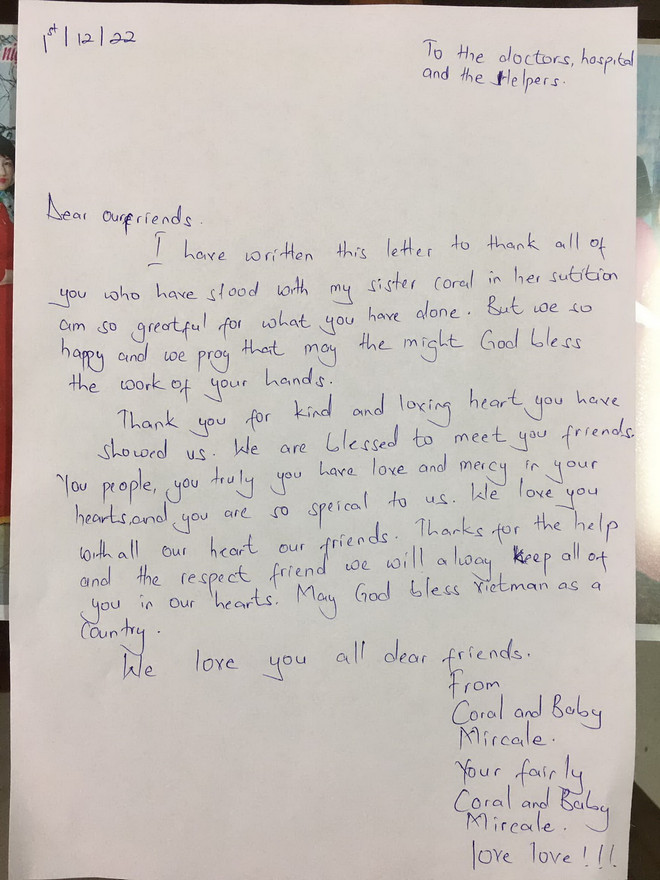 1st/12/22
To the doctors, hospital
and the Helpers.
Dear our friends.
I have written this letter to thank all of
you who have stood with my sister coral in her sutition
am so greatful for what you have done. But we so
happy and we pray that may the might God bless
the work of your hands.
Thank you for kind and loving heart you have
showed us. We are blessed to meet you friends.
You people, you truly you have love and mercy in your
hearts, and you are so speical to us. We love you
with all our heart our friends. Thanks for the help
and the respect friend we will alway keep all of
you in our hearts. May God bless Vietman as a
Country.
We love you all dear friends.
From
Coral and Baby
Mircale.
Your fairly
Coral and Baby
Mircale.
love love!!!